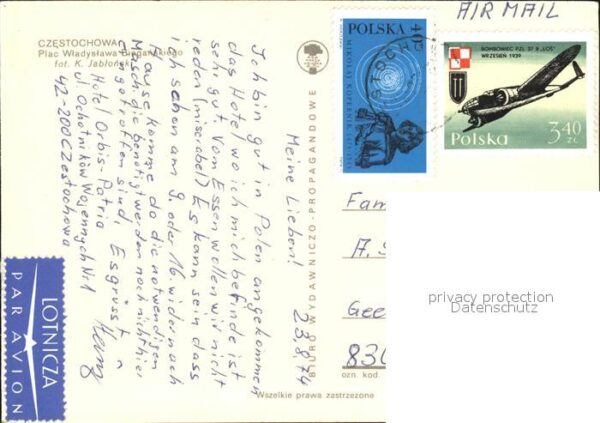 CZĘSTOCHOWA
Plac Władysława Biegańskiego
fot. K. Jabłoński
AIR MAIL
POLSKA
MIKOŁAJ KOPERNIK
BOMBOWIEC PZL 37 B „ŁOŚ"
WRZESIEŃ 1939
Polska
3,40
ZŁ
23.8.74
Meine Lieben!
Ich bin gut in Polen angekommen
das Hotel wo ich mich befinde ist
sehr gut. Vom Essen wollen wir nicht
reden (miserabel) Es kann sein dass
ich schon am 9. oder 16. wieder nach
Hause komme da die notwendigen
die benötigt werden noch nicht hier
eingetroffen sind. Es grüsst
Hotel Orbis-Patria
ul Ochotników Wojennych Nr 1
42-200 Czestochowa
BIURO WYDAWNICZO-PROPAGANDOWE
LOTNICZA
PAR AVION
Wszelkie prawa zastrzeżone
Fam
A. S
Gee
830
ozn. kod.
privacy protection
Datenschutz